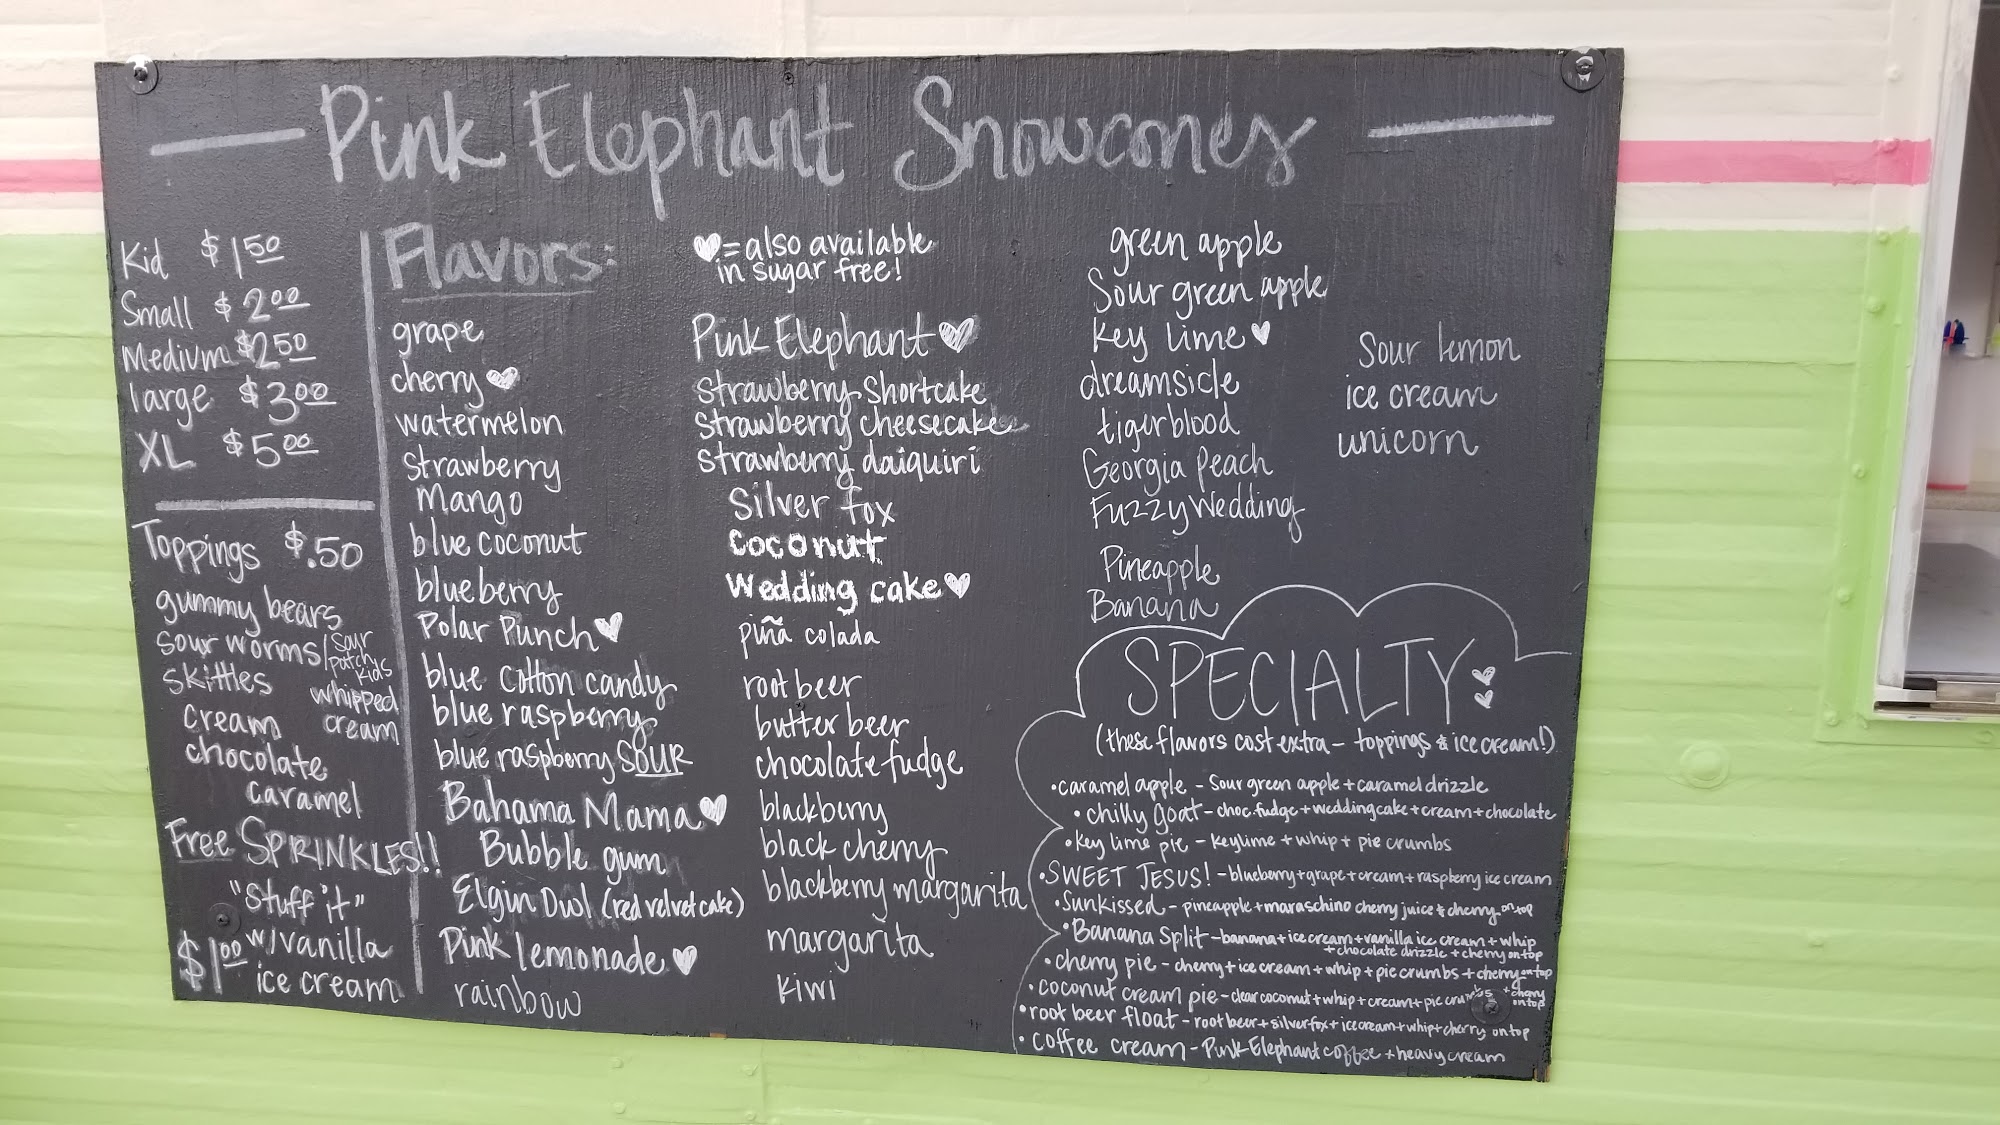 Pink Elephant Snowcones
Kid $1.50
Small $2.00
Medium $2.50
large $3.00
XL $5.00
Toppings $.50
gummy bears
sour worms/sour patch kids
skittles
whipped cream
cream
chocolate
caramel
Free SPRINKLES!!
"Stuff it"
$1.00 w/vanilla
ice cream
Flavors:
grape
cherry ♥
watermelon
strawberry
Mango
blue coconut
blueberry
Polar Punch ♥
blue cotton candy
blue raspberry
blue raspberry SOUR
Bahama Mama ♥
Bubble gum
Elgin Owl (red velvet cake)
Pink lemonade ♥
rainbow
♥ = also available
in sugar free!
Pink Elephant ♥
strawberry shortcake
strawberry cheesecake
strawberry daiquiri
Silver fox
coconut
wedding cake ♥
piña colada
root beer
butter beer
chocolate fudge
blackberry
black cherry
blackberry margarita
margarita
kiwi
green apple
Sour green apple
key lime ♥
dreamsicle
tigerblood
Georgia Peach
Fuzzy Wedding
Pineapple
Banana
Sour lemon
ice cream
unicorn
SPECIALTY ♥♥
(these flavors cost extra - toppings & ice cream!)
• caramel apple - Sour green apple + caramel drizzle
• chilly goat - choc. fudge + wedding cake + cream + chocolate
• key lime pie - keylime + whip + pie crumbs
• SWEET JESUS! - blueberry + grape + cream + raspberry ice cream
• Sunkissed - pineapple + maraschino cherry juice & cherry on top
• Banana Split - banana + ice cream + vanilla ice cream + whip
+ chocolate drizzle + cherry on top
• cherry pie - cherry + ice cream + whip + pie crumbs + cherry on top
• coconut cream pie - clear coconut + whip + cream + pie crumbs + cherry on top
• root beer float - root beer + silver fox + ice cream + whip + cherry on top
• coffee cream - Pink Elephant coffee + heavy cream